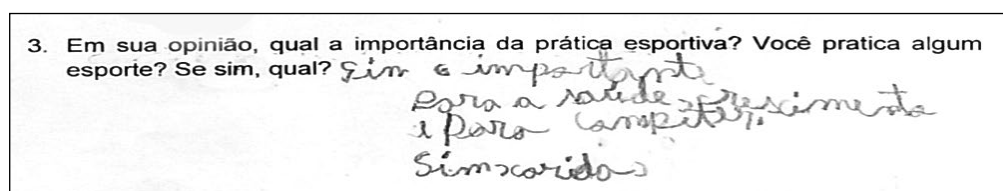 3. Em sua opinião, qual a importância da prática esportiva? Você pratica algum
esporte? Se sim, qual? Sim e importante
para a saúde, crescimento
i para competir.
Sim, corida